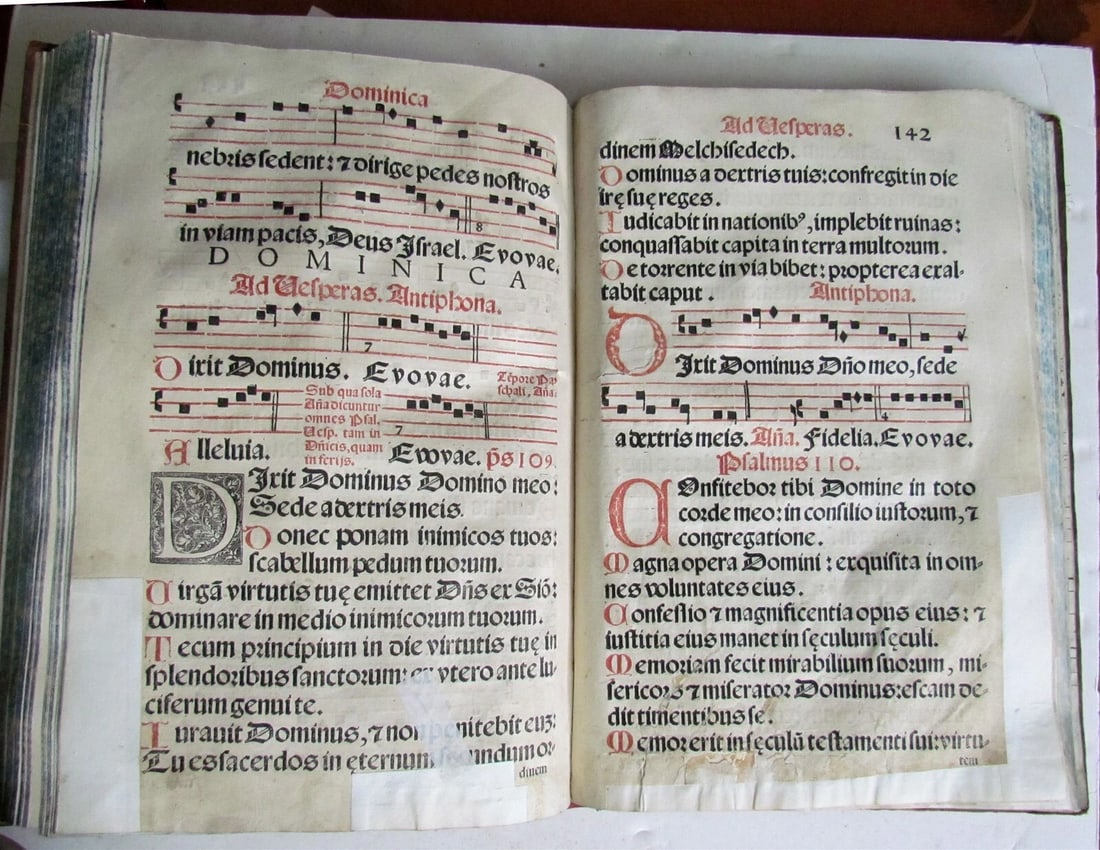 Dominica
nebris sedent: ⁊ dirige pedes nostros
8
in viam pacis, Deus Israel. Evovae.
DOMINICA
Ad Vesperas. Antiphona.
7
Dixit Dominus. Evovae.
Tēpore Pas
chali, Aña.
Sub qua sola
Aña dicuntur
omnes Psal.
Vesp. tam in
Dñicis, quam
in ferijs.
7
Alleluia. Evovae. p̄s 109.
DIxit Dominus Domino meo:
Sede a dextris meis.
Donec ponam inimicos tuos:
scabellum pedum tuorum.
Virgā virtutis tuę emittet Dñs ex Siō:
dominare in medio inimicorum tuorum.
Tecum principium in die virtutis tuę in
splendoribus sanctorum: ex vtero ante lu-
ciferum genui te.
Iurauit Dominus, ⁊ non nitebit euʒ:
Tu es sacerdos in ęternum undum or-
dinem
Ad Vesperas. 142
dinem Melchisedech.
Dominus a dextris tuis: confregit in die
irę suę reges.
Iudicabit in nationibꝰ, implebit ruinas:
conquassabit capita in terra multorum.
De torrente in via bibet: propterea exal-
tabit caput. Antiphona.
DIxit Dominus Dño meo, sede
4
a dextris meis. Aña. Fidelia. Evovae.
Psalmus 110.
COnfitebor tibi Domine in toto
corde meo: in consilio iustorum, ⁊
congregatione.
Magna opera Domini: exquisita in om-
nes voluntates eius.
Confessio ⁊ magnificentia opus eius: ⁊
iustitia eius manet in sęculum sęculi.
Memoriam fecit mirabilium suorum, mi-
sericors ⁊ miserator Dominus: escam de-
dit timentibus se.
Memor erit in sęculū testamenti sui: virtu-
tem